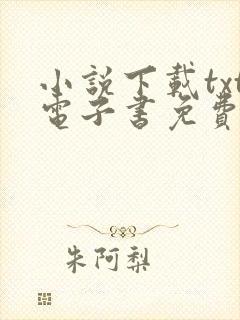 小說下載txt
電子書免費
朱阿梨